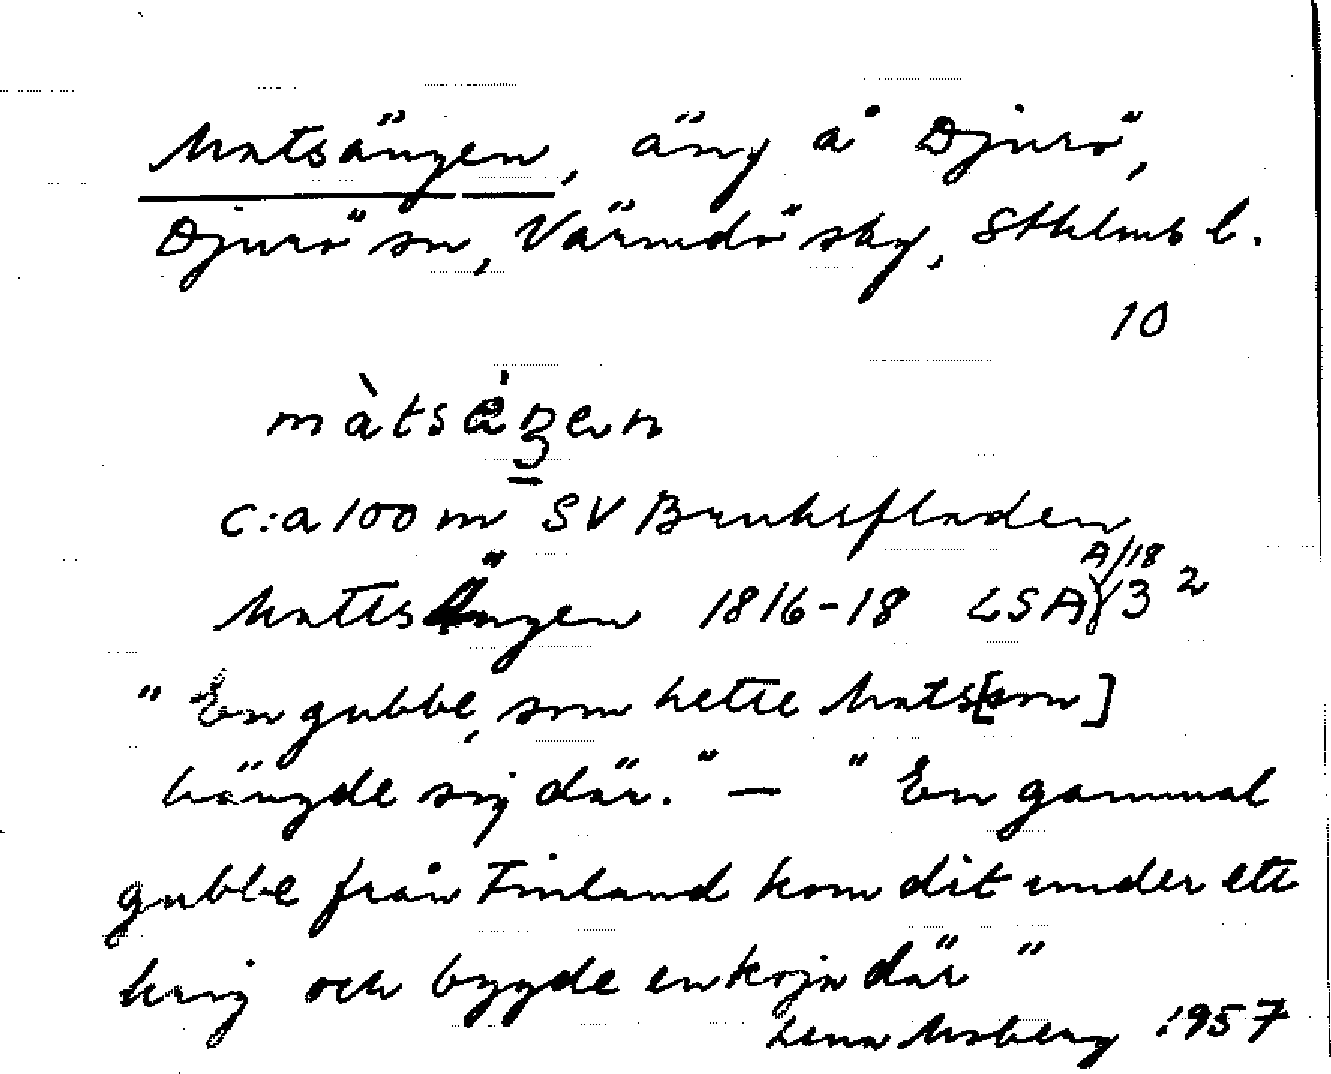 Matsängen, äng å Djurö,
Djurö sn, Värmdö skg, Sthlms l.
10
màtsèŋen
c:a 100 m SV Bruksfladen
Mattsängen 1816-18 LSA A/18 3²
"En gubbe, som hette Mats[son]
hängde sig där." – "En gammal
gubbe från Finland kom dit under ett
krig och byggde en koja där"
Lena Moberg 1957